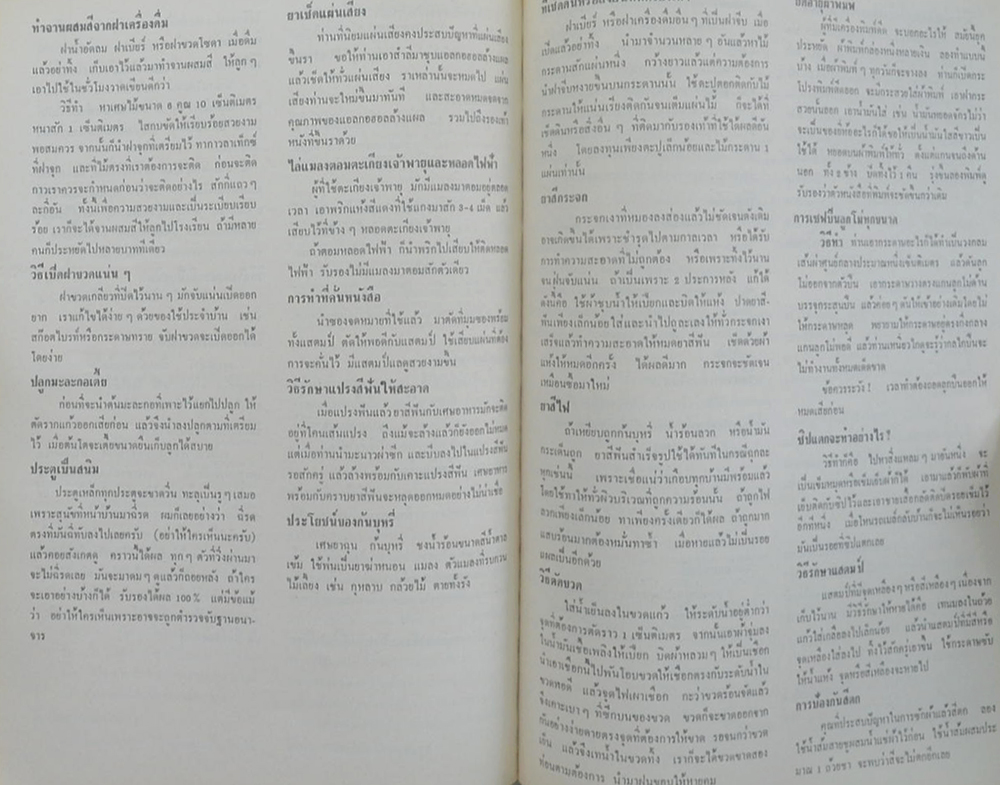 ทำจานผสมสีจากฝาเครื่องดื่ม
ฝาน้ำอัดลม ฝาเบียร์ หรือฝาขวดโซดา เมื่อดื่ม
แล้วอย่าทิ้ง เก็บเอาไว้แล้วมาทำจานผสมสี ให้ลูกๆ
เอาไปใช้ในชั่วโมงวาดเขียนดีกว่า
วิธีทำ หาเศษไม้ขนาด 8 คูณ 10 เซ็นติเมตร
หนาสัก 1 เซ็นติเมตร ใสกบขัดให้เรียบร้อยสวยงาม
พอสมควร จากนั้นก็นำฝาจุกที่เตรียมไว้ ทากาวลาเท็กซ์
ที่ฝาจุก และที่ไม้ตรงที่เราต้องการจะติด ก่อนจะติด
กาวเราควรจะกำหนดก่อนว่าจะติดอย่างไร สักกี่แถวๆ
ละกี่อัน ทั้งนี้เพื่อความสวยงามและเป็นระเบียบเรียบ
ร้อย เราก็จะได้จานผสมสีให้ลูกไปโรงเรียน ถ้ามีหลาย
คนก็ประหยัดไปหลายบาททีเดียว
วิธีเปิดฝาขวดแน่น ๆ
ฝาขวดเกลียวที่ปิดไว้นานๆ มักจับแน่นเปิดออก
ยาก เราแก้ไขได้ง่ายๆ ด้วยของใช้ประจำบ้าน เช่น
สก๊อตไบรท์หรือกระดาษทราย จับฝาขวดจะเปิดออกได้
โดยง่าย
ปลูกมะละกอเตี้ย
ก่อนที่จะนำต้นมะละกอที่เพาะไว้แยกไปปลูก ให้
ตัดรากแก้วออกเสียก่อน แล้วจึงนำลงปลูกตามที่เตรียม
ไว้ เมื่อต้นโตจะเตี้ยขนาดยืนเก็บลูกได้สบาย
ประตูเป็นสนิม
ประตูเหล็กทุกประตูจะขาดวิ่น ทะลุเป็นรูๆเสมอ
เพราะสุนัขที่หน้าบ้านมาฉี่รด ผมก็เลยอย่างว่า ฉี่รด
ตรงที่มันฉี่ทับลงไปเลยครับ (อย่าให้ใครเห็นนะครับ)
แล้วคอยสังเกตดู คราวนี้ได้ผล ทุกๆตัวที่วิ่งผ่านมา
จะไม่ฉี่รดเลย มันจะมาดมๆ ดูแล้วก็ถอยหลัง ถ้าใคร
จะเอาอย่างบ้างก็ได้ รับรองได้ผล 100% แต่มีข้อแม้
ว่า อย่าให้ใครเห็นเพราะอาจจะถูกตำรวจจับฐานอนา-
จาร
ยาเช็ดแผ่นเสียง
ท่านที่นิยมแผ่นเสียงคงประสบปัญหาที่แผ่นเสียง
ขึ้นรา ขอให้ท่านเอาสำลีมาชุบแอลกอฮอลล้างแผล
แล้วเช็ดให้ทั่วแผ่นเสียง ราเหล่านั้นจะหมดไป แผ่น
เสียงท่านจะใหม่ขึ้นมาทันที และสะอาดหมดจดจาก
คุณภาพของแอลกอฮอล์ล้างแผล รวมไปถึงรองเท้า
หนังที่ขึ้นราด้วย
ไล่แมลงตอมตะเกียงเจ้าพายุและหลอดไฟฟ้า
ผู้ที่ใช้ตะเกียงเจ้าพายุ มักมีแมลงมาตอมอยู่ตลอด
เวลา เอาพริกแห้งสีแดงที่ใช้แกงมาสัก 3-4 เม็ด แล้ว
เสียบไว้ที่ข้าง ๆ หลอดตะเกียงเจ้าพายุ
ถ้าตอมหลอดไฟฟ้า ก็นำพริกไปเสียบให้ติดหลอด
ไฟฟ้า รับรองไม่มีแมลงมาตอมสักตัวเดียว
การทำที่คั่นหนังสือ
นำซองจดหมายที่ใช้แล้ว มาตัดที่มุมซองพร้อม
ทั้งแสตมป์ ตัดให้พอดีกับแสตมป์ ใช้เสียบแผ่นที่ต้อง
การจะคั่นไว้ มีแสตมป์แลดูสวยงามขึ้น
วิธีรักษาแปรงสีฟันให้สะอาด
เมื่อแปรงฟันแล้วยาสีฟันกับเศษอาหารมักจะติด
อยู่ที่โคนเส้นแปรง ถึงแม้จะล้างแล้วก็ยังออกไม่หมด
แต่เมื่อท่านนำมะนาวผ่าซีก และบีบลงไปในแปรงสีฟัน
รอสักครู่ แล้วล้างพร้อมกับเคาะแปรงสีฟัน เศษอาหาร
พร้อมกับคราบยาสีฟันจะหลุดออกหมดอย่างไม่น่าเชื่อ
ประโยชน์ของก้นบุหรี่
เศษยาฉุน ก้นบุหรี่ ชงน้ำร้อนขนาดสีน้ำตาล
เข้ม ใช้พ่นเป็นยาฆ่าหนอน แมลง ตัวแมลงที่รบกวน
ไม้เลี้ยง เช่น กุหลาบ กล้วยไม้ ตายทั้งรัง
ฝาเบียร์ หรือฝาเครื่องดื่มอื่นๆ ที่เป็นฝาจีบ เมื่อ
เปิดแล้วอย่าทิ้ง นำมาจำนวนหลายๆ อันแล้วหาไม้
กระดานสักแผ่นหนึ่ง กว้างยาวแล้วแต่ความต้องการ
นำฝาจีบหงายขึ้นบนกระดานนั้น ใช้ตะปูตอกติดกับไม้
กระดานให้แน่นเรียงติดกันจนเต็มแผ่นไม้ ก็จะได้ที่
เช็ดดินหรือสิ่งอื่น ๆ ที่ติดมากับรองเท้าที่ใช้ได้ผลดีอัน
หนึ่ง โดยลงทุนเพียงตะปูเล็กน้อยและไม้กระดาน 1
แผ่นเท่านั้น
ยาสีกระจก
กระจกเงาที่หมองลงส่องแล้วไม่ชัดเจนดังเดิม
อาจเกิดขึ้นได้เพราะชำรุดไปตามกาลเวลา หรือได้รับ
การทำความสะอาดที่ไม่ถูกต้อง หรือเพราะทิ้งไว้นาน
จนฝุ่นจับแน่น ถ้าเป็นเพราะ 2 ประการหลัง แก้ได้
ดังนี้คือ ใช้ผ้าชุบน้ำให้เปียกและบิดให้แห้ง ป้ายยาสี-
ฟันเพียงเล็กน้อยใส่และนำไปถูละเลงให้ทั่วกระจกเงา
เสร็จแล้วทำความสะอาดให้หมดยาสีฟัน เช็ดด้วยผ้า
แห้งให้หมดอีกครั้ง ได้ผลดีมาก กระจกจะชัดเจน
เหมือนซื้อมาใหม่
ยาสีไฟ
ถ้าเหยียบถูกก้นบุหรี่ น้ำร้อนลวก หรือน้ำมัน
กระเด็นถูก ยาสีฟันสำเร็จรูปใช้ได้ทันทีในกรณีฉุกละ
หุกเช่นนี้ เพราะเชื่อแน่ว่าเกือบทุกบ้านมีพร้อมแล้ว
โดยใช้ทาให้ทั่วผิวบริเวณที่ถูกความร้อนนั้น ถ้าถูกไฟ
ลวกเพียงเล็กน้อย ทาเพียงครั้งเดียวก็ได้ผล ถ้าถูกมาก
แสบร้อนมากต้องหมั่นทาซ้ำ เมื่อหายแล้วไม่เป็นรอย
แผลเป็นอีกด้วย
วิธีตัดขวด
ใส่น้ำเย็นลงในขวดแก้ว ให้ระดับน้ำอยู่ต่ำกว่า
จุดที่ต้องการตัดราว 1 เซ็นติเมตร จากนั้นเอาผ้าจุ่มลง
ในน้ำมันเชื้อเพลิงให้เปียก บิดผ้าหลวมๆ ให้เป็นเชือก
นำเอาเชือกนี้ไปพันโอบขวดให้เชือกตรงกับระดับน้ำใน
ขวดพอดี แล้วจุดไฟเผาเชือก กะว่าขวดร้อนจัดแล้ว
จึงเคาะเบาๆ ที่ซีกบนของขวด ขวดก็จะขาดออกจาก
กันอย่างง่ายดายตรงจุดที่ต้องการให้ขาด รอจนกว่าขวด
เย็น แล้วจึงเทน้ำในขวดทิ้ง เราก็จะได้ขวดขาดสอง
ท่อนตามต้องการ นำมาฝนขอบให้หายคม
ผู้ที่มีเครื่องพิมพ์ดีด
ประหยัด ผ้าพิมพ์กล่องหนึ่งหลายเงิน ลองทำแบบนี้
บ้าง เมื่อผ้าพิมพ์ๆ ทุกวันก็จะจางลง ท่านก็เปิดกระ
โปรงพิมพ์ดีดออก
ใช้ได้ หยอดบนผ้าพิมพ์ให้ทั่ว
นอก ทั้ง 2 ข้าง ปิดทิ้งไว้ 1 คืน รุ่งขึ้นลองพิมพ์ดู
รับรองว่าตัวหนังสือที่พิมพ์จะชัดขึ้นกว่าเดิม
วิธีทำ ท่านเอากระดาษอะไรก็ได้ทำเป็นวงกลม
เส้นผ่าศูนย์กลางประมาณหนึ่งเซ็นติเมตร แล้วดันลูก
ข้อควรระวัง! เวลาทำต้องถอดลูกปืนออกให้
หมดเสียก่อน
ซิปแตกจะทำอย่างไร?
วิธีรักษาแสตมป์
แสตมป์ที่มีจุดเหลืองๆหรือสีเหลืองๆ เนื่องจาก
เก็บไว้นาน มีวิธีรักษาให้หายได้คือ เทนมลงในถ้วย
แก้วใส่เกลือลงไปเล็กน้อย แล้วนำแสตมป์ที่มีสีหรือ
จุดเหลืองใส่ลงไป ทิ้งไว้สักครู่เอาขึ้น ใช้กระดาษซับ
ให้น้ำแห้ง จุดหรือสีเหลืองจะหายไป
การป้องกันสีตก
คุณที่ประสบปัญหาในการซักผ้าแล้วสีตก ลอง
ใช้น้ำส้มสายชูผสมน้ำแช่ผ้าไว้ก่อน ใช้น้ำส้มผสมประ
มาณ 1 ถ้วยชา จะพบว่าสีจะไม่ตกอีกเลย